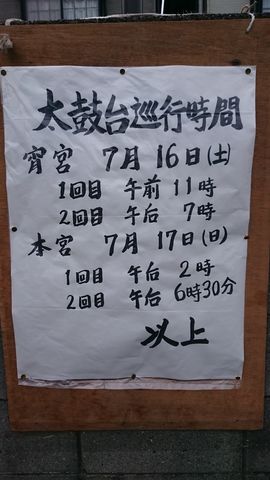 太鼓台巡行時間
宵宮 7月16日(土)
1回目 午前 11時
2回目 午后 7時
本宮 7月17日(日)
1回目 午后 2時
2回目 午后 6時30分
以上